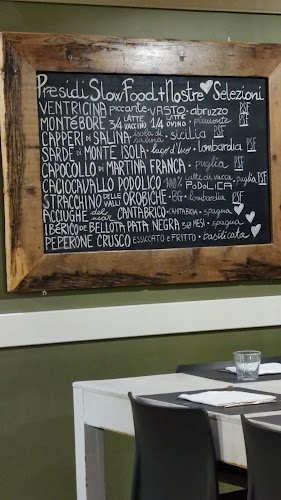 Presidi SlowFood + Nostre Selezioni
VENTRICINA piccante • VASTO • abruzzo PSF
MONTÉBORE 3/4 LATTE VACCINO 1/4 LATTE OVINO • piemonte PSF
CAPPERI DI SALINA isola di salina • sicilia PSF
SARDE DI MONTE ISOLA • lago d'Iseo • lombardia PSF
CAPOCOLLO DI MARTINA FRANCA • puglia PSF
CACIOCAVALLO PODOLICO 100% latte di vacca PODOLICA • puglia PSF
STRACCHINO DELLE VALLI OROBICHE • BG • lombardia PSF
ACCIUGHE del mar CANTABRICO • CANTABRIA • spagna
IBÉRICO DE BELLOTA PATA NEGRA 50 MESI • spagna
PEPERONE CRUSCO ESSICCATO e FRITTO • basilicata